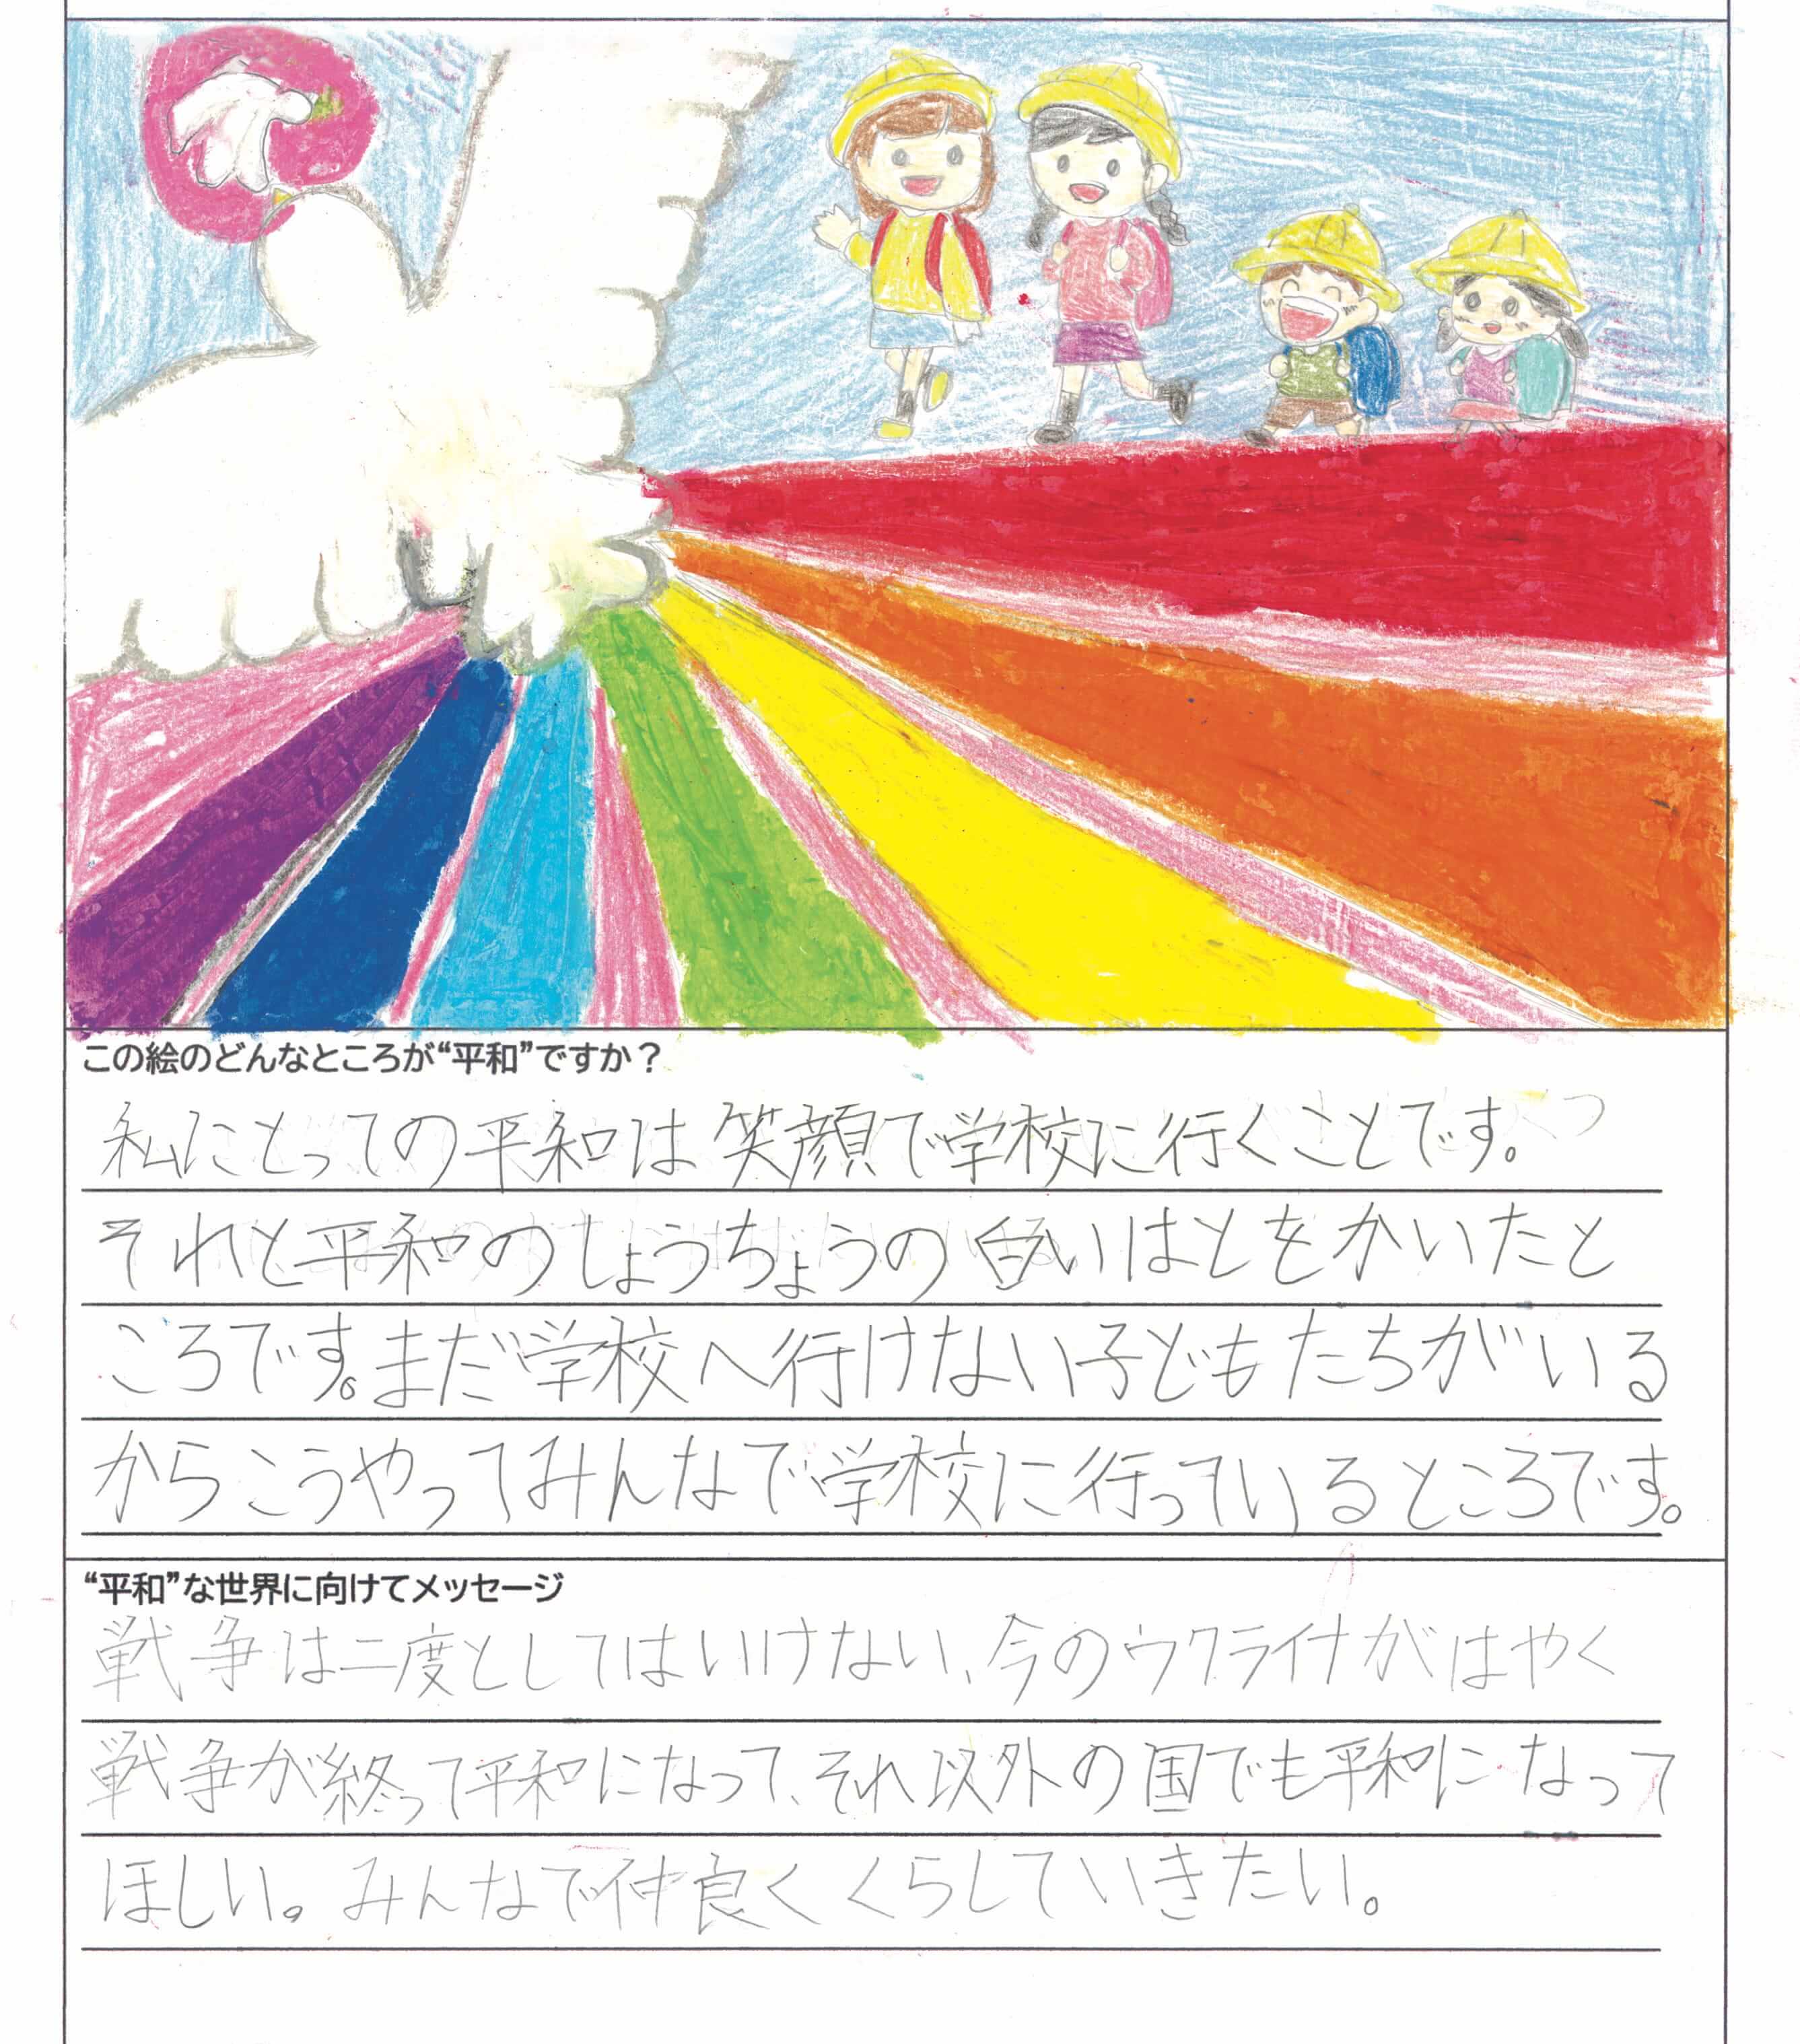 この絵のどんなところが“平和”ですか？
私にとっての平和は笑顔で学校に行くことです。
それと平和のしょうちょうの白いはとをかいたと
ころです。まだ学校へ行けない子どもたちがいる
からこうやってみんなで学校に行っているところです。
“平和”な世界に向けてメッセージ
戦争は二度としてはいけない、今のウクライナがはやく
戦争が終って平和になって、それ以外の国でも平和になって
ほしい。みんなで仲良くくらしていきたい。